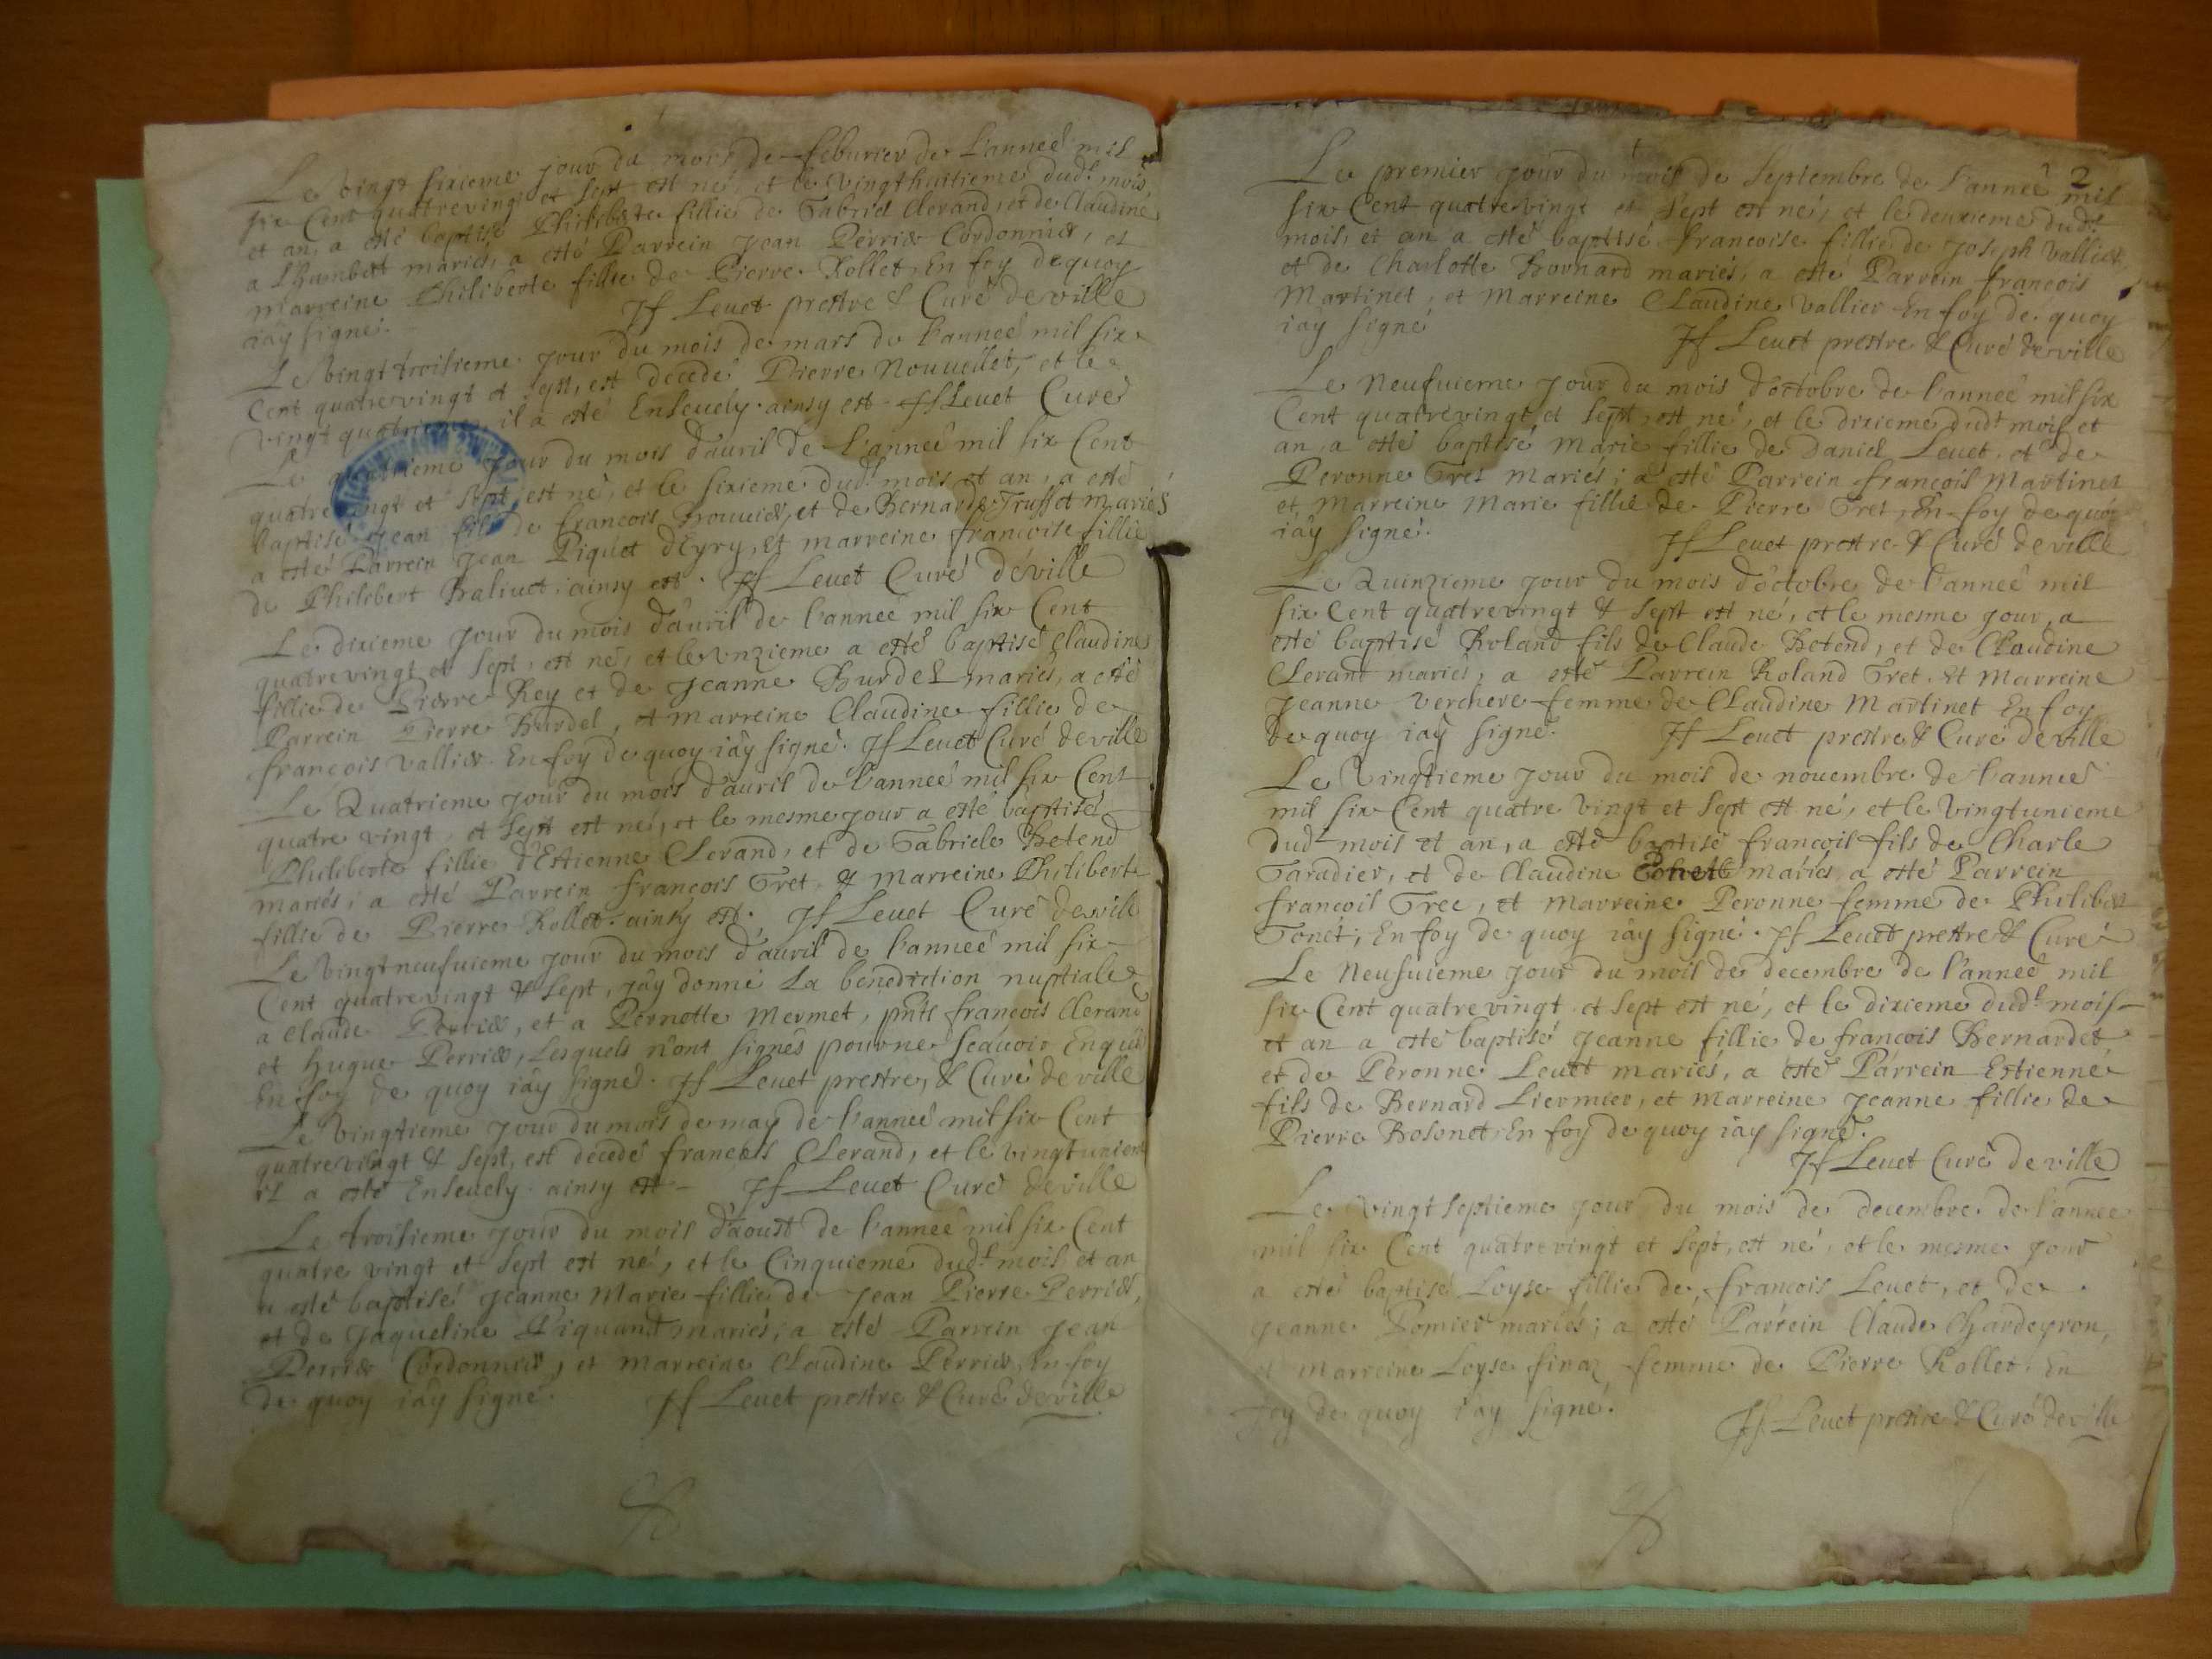 Le vingt sixieme jour du mois de feburier de l'anneé mil
six Cent quatrevingt et sept est né, et le vingthuitieme dudt mois,
et an, a esté baptisé Philiberte fillie de Gabriel Clerand, et de Claudine
a Lhumbert mariés, a esté Parrein Jean Perrier Cordonnier, et
marreine Philiberte fillie de Pierre Rollet, En foy dequoy
iáy signé. Jf Leuet prestre & Curé deville
Le vingt troisieme jour du mois de mars de l'anneé mil six
Cent quatrevingt et sept, est decedé Pierre Nouuellet, et le
vingt il a esté Enseuely. ainsy est Jf Leuet Curé
Le jour du mois d'auril de l'anneé mil six Cent
quatre vingt et sept, est né, et le sixieme dudt mois et an, a esté
baptisé Jean fils de francois Brouuier, et de Bernarde Truffet mariés
a esté Parrein Jean Piquet d'Eyry, et marreine francoise fillie
de Philibert Baliuet, ainsy est. Jf Leuet Curé deville
Le dixieme jour du mois d'auril de l'anneé mil six Cent
quatrevingt et sept, est né, et le vnzieme a esté baptisé Claudine
fillie de Pierre Rey et de Jeanne Burdel mariés, a esté
Parrein Pierre Burdel, et marreine Claudine fillie de
françois vallier. En foy de quoy iáy signé. Jf Leuet Curé deville
Le Quatrieme jour du mois d'auril de l'anneé mil six Cent
quatre vingt, et sept est né, et le mesme jour a esté baptisé
Philiberte fillie d'Estienne Clerand, et de Gabriele Betend
mariés; a esté Parrein françois Tret, & marreine Philiberte
fillie de Pierre Rollet. ainsy est. Jf Leuet Curé deville
Le vingtneufuieme jour du mois d'auril de l'anneé mil six
Cent quatrevingt & sept, j'ay donné La benediction nuptiale
a Claude Perrier, et a Pernette Mermet, pnts françois Clerand
et hugue Perrier, Lesquels n'ont signés pour ne scauoir Enquis
En foy de quoy iáy signé. Jf Leuet prestre, & Curé deville
Le vingtieme jour du mois de may de l'anneé mil six Cent
quatrevingt & sept, est decedé francois Clerand, et le vingtunieme
il a esté Enseuely. ainsy est Jf Leuet Curé deville
Le troisieme jour du mois d'aoust de l'anneé mil six Cent
quatre vingt et sept est né, et le Cinquieme dudt mois et an
a esté baptisé Jeanne Marie fillie de Jean Pierre Perrier,
et de Jaqueline Piquand mariés; a esté Parrein Jean
Perrier Cordonnier, et marreine Claudine Perrier, En foy
de quoy iáy signé. Jf Leuet prestre & Curé deville
2
Le premier jour du mois de Septembre de l'anneé mil
six Cent quatrevingt et sept est né, et le deuxieme dudt
mois, et an a esté baptisé francoise fillie de Joseph vallier,
et de Charlotte Bornard mariés, a esté Parrein françois
Martinet, et Marreine Claudine vallier En foy de quoy
iáy signé Jf Leuet prestre & Curé deville
Le Neufuieme jour du mois d'octobre de l'anneé mil six
Cent quatrevingt et sept, est né, et le dixieme dudt mois et
an, a esté baptisé Marie fillie de Daniel Leuet, et de
Peronne Tret mariés; a esté Parrein françois Martinet
et, marreine Marie fillie de Pierre Tret, En foy de quoy
iáy signé. Jf Leuet prestre & Curé deville
Le Quinzieme jour du mois d'octobre de l'anneé mil
six Cent quatrevingt & sept est né, et le mesme jour, a
esté baptisé Roland fils de Claude Betend, et de Claudine
Clerand mariés, a esté Parrein Roland Tret. Et Marreine
Jeanne verchere femme de Claudine Martinet En foy
de quoy iáy signé. Jf Leuet prestre & Curé deville
Le Vingtieme jour du mois de nouembre de l'anneé
mil six Cent quatre vingt et sept est né, et le vingtunieme
dudt mois et an, a esté baptisé francois fils de Charle
Taradier, et de Claudine mariés, a esté Parrein
francois Tret, et marreine Peronne femme de Philibert
Tonet, En foy de quoy iáy signé. Jf Leuet prestre & Curé
Le Neufuieme jour du mois de decembre de l'anneé mil
six Cent quatrevingt et sept est né, et le dixieme dudt mois
et an a esté baptisé Jeanne fillie de françois Bernardet
et de Peronne Leuet mariés, a esté Parrein Estienne
fils de Bernard Liermier, et marreine Jeanne fillie de
Pierre Bosonet, En foy de quoy iáy signé.
Jf Leuet Curé deville
Le vingt septieme jour du mois de decembre de l'anneé
mil six Cent quatrevingt et sept, est né, et le mesme jour
a esté baptisé Loyse fillie de, francois Leuet, et de
Jeanne Pomier mariés; a esté Parrein Claude Chardeyron,
et Marreine Loyse finaz femme de Pierre Rollet. En
foy de quoy iay signé. Jf Leuet prestre & Curé deville